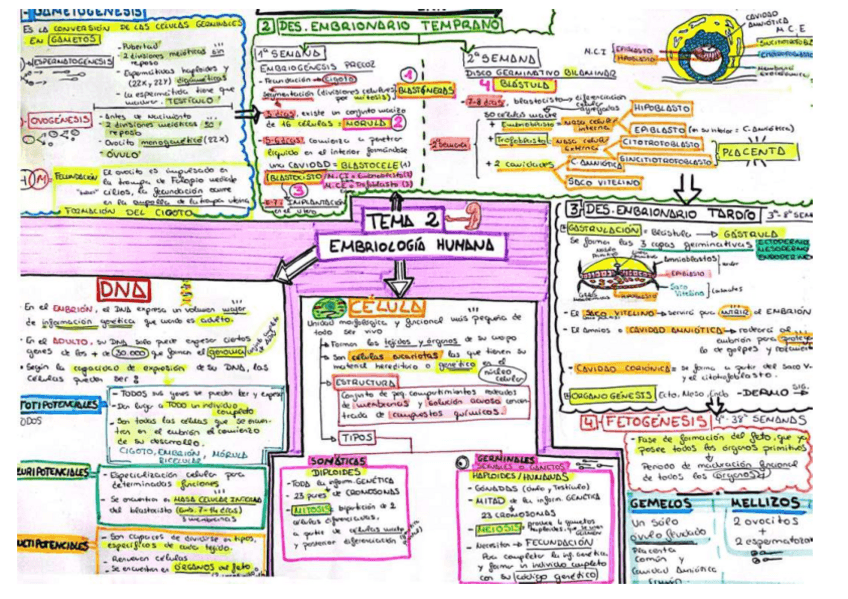 GAMETOGÉNESIS
ES LA CONVERSIÓN DE LAS CÉLULAS GERMINALES
EN GAMETOS
ESPERMATOGÉNESIS
- Pubertad
- 2 divisiones meióticas sin
reposo
- Espermátidas haploides y
(22X, 22Y)
- La espermátida tiene que
madurar. TESTÍCULO
OVOGÉNESIS
- Antes de nacimiento
- 2 divisiones meióticas
reposo
- Ovocito monogamético (22X)
- ÓVULO
FECUNDACIÓN
El ovocito es impulsado en
la trompa de Falopio mediante
cilios, la fecundación ocurre
en la ampolla de la trompa uterina
FORMACIÓN DEL CIGOTO
2) DES. EMBRIONARIO TEMPRANO
1ª SEMANA
EMBRIOGÉNESIS PRECOZ
- Fecundación → Cigoto
Segmentación (divisiones celulares por mitosis) BLASTÓMEROS
1
- 3 días, existe un conjunto macizo
de 16 células = MÓRULA 2
- 5-6 días: comienza a penetrar
líquido en el interior formándose
una CAVIDAD = BLASTOCELE (1)
BLASTOCISTO
3
IMPLANTACIÓN
en el útero
2ª SEMANA
DISCO GERMINATIVO BILAMINAR
4 BLÁSTULA
- 7-8 días, blastocisto → diferenciación celular
+ Embrioblasto = masa celular
interna
HIPOBLASTO
EPIBLASTO
+ Trofoblasto = masa celular
externa
CITOTROFOBLASTO
SINCITIOTROFOBLASTO
PLACENTA
+ 2 cavidades
C. AMNIÓTICA
SACO VITELINO
2ª semana
CAVIDAD
AMNIÓTICA
M.C.E
N.C.I
EPIBLASTO
HIPOBLASTO
TEMA 2
EMBRIOLOGÍA HUMANA
3) DES. EMBRIONARIO TARDÍO 3ª-8ª SEM
GASTRULACIÓN = Blástula → GÁSTRULA
Se forman las 3 capas germinativas
ECTODERMO
MESODERMO
ENDODERMO
Amnioblastos
EPIBLASTO
Saco
Vitelino
HIPOBLASTO
- El SACO VITELINO → servirá para NUTRIR al EMBRIÓN
- El Amnios o CAVIDAD AMNIÓTICA → rodeará al
embrión para
lo de golpes y
- CAVIDAD CORIÓNICA = se forma a partir del Saco V.
y el citotrofoblasto.
ORGANOGÉNESIS Ecto, Meso, Endo -DERMO
SIG.
4) FETOGÉNESIS 9ª-38ª SEMANAS
- Fase de formación del feto, que ya
posee todos los órganos primitivos
Periodo de maduración funcional
de todos los órganos
GEMELOS
Un sólo
óvulo fecundado
Placenta
común y
Cavidad Amniótica
común
MELLIZOS
2 ovocitos
+
2 espermatozo
DNA
- En el EMBRIÓN, el DNA expresa un volumen mayor
de información genética que cuando es adulto.
- En el ADULTO, su DNA solo puede expresar ciertos
genes de los + de 30.000 que forman el genoma
- Según la capacidad de expresión de su DNA, las
células pueden ser:
TOTIPOTENCIALES
TODOS
- TODOS sus genes se pueden leer y expresar
- Dan lugar a TODO un individuo
completo
- Son todas las células que se encuen-
tran en el embrión al comienzo
de su desarrollo.
CIGOTO, EMBRIÓN, MÓRULA
BICELULAR
PLURIPOTENCIALES
- Especialización celular para
determinadas funciones
- Se encuentran en MASA CELULAR INTERNA
del blastocisto
MULTIPOTENCIALES
- Son capaces de dividirse en tipos
específicos de cada tejido.
- Renuevan células
- Se encuentran en ÓRGANOS del feto
CÉLULA
Unidad morfológica y funcional más pequeña de
todo ser vivo
Forman los tejidos y órganos de su cuerpo
Son células eucariotas las que tienen su
material hereditario o genético en el
núcleo
celular
ESTRUCTURA
Conjunto de peq. compartimentos rodeados
de membranas y solución acuosa concen-
trada de compuestos químicos.
TIPOS
SOMÁTICAS
DIPLOIDES
- TODA la inform. GENÉTICA
- 23 pares de CROMOSOMAS
- MITOSIS bipartición de 2
células diferenciadas,
a partir de células madre
y posterior diferenciación
GERMINALES
SEXUALES O GAMETOS
HAPLOIDES/HUMANAS
- GÓNADAS (Ovario, Testículo)
- MITAD de la inform. GENÉTICA
+
23 CROMOSOMAS
- MEIOSIS
- Necesitan → FECUNDACIÓN
Para completar la inf. genética
y formar un individuo completo
con su código genético